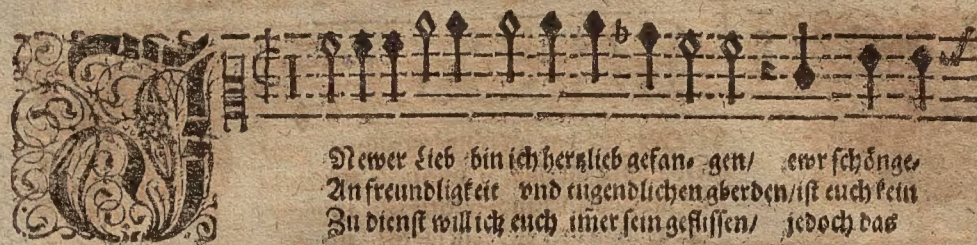 J
Newer Lieb bin ich hertzlieb gefan- gen/ ewr schönge-
An freundligkeit vnd tugendlichen gberden/ist euch kein
Zu dienst will ich euch im̄er sein geflissen/ jedoch das